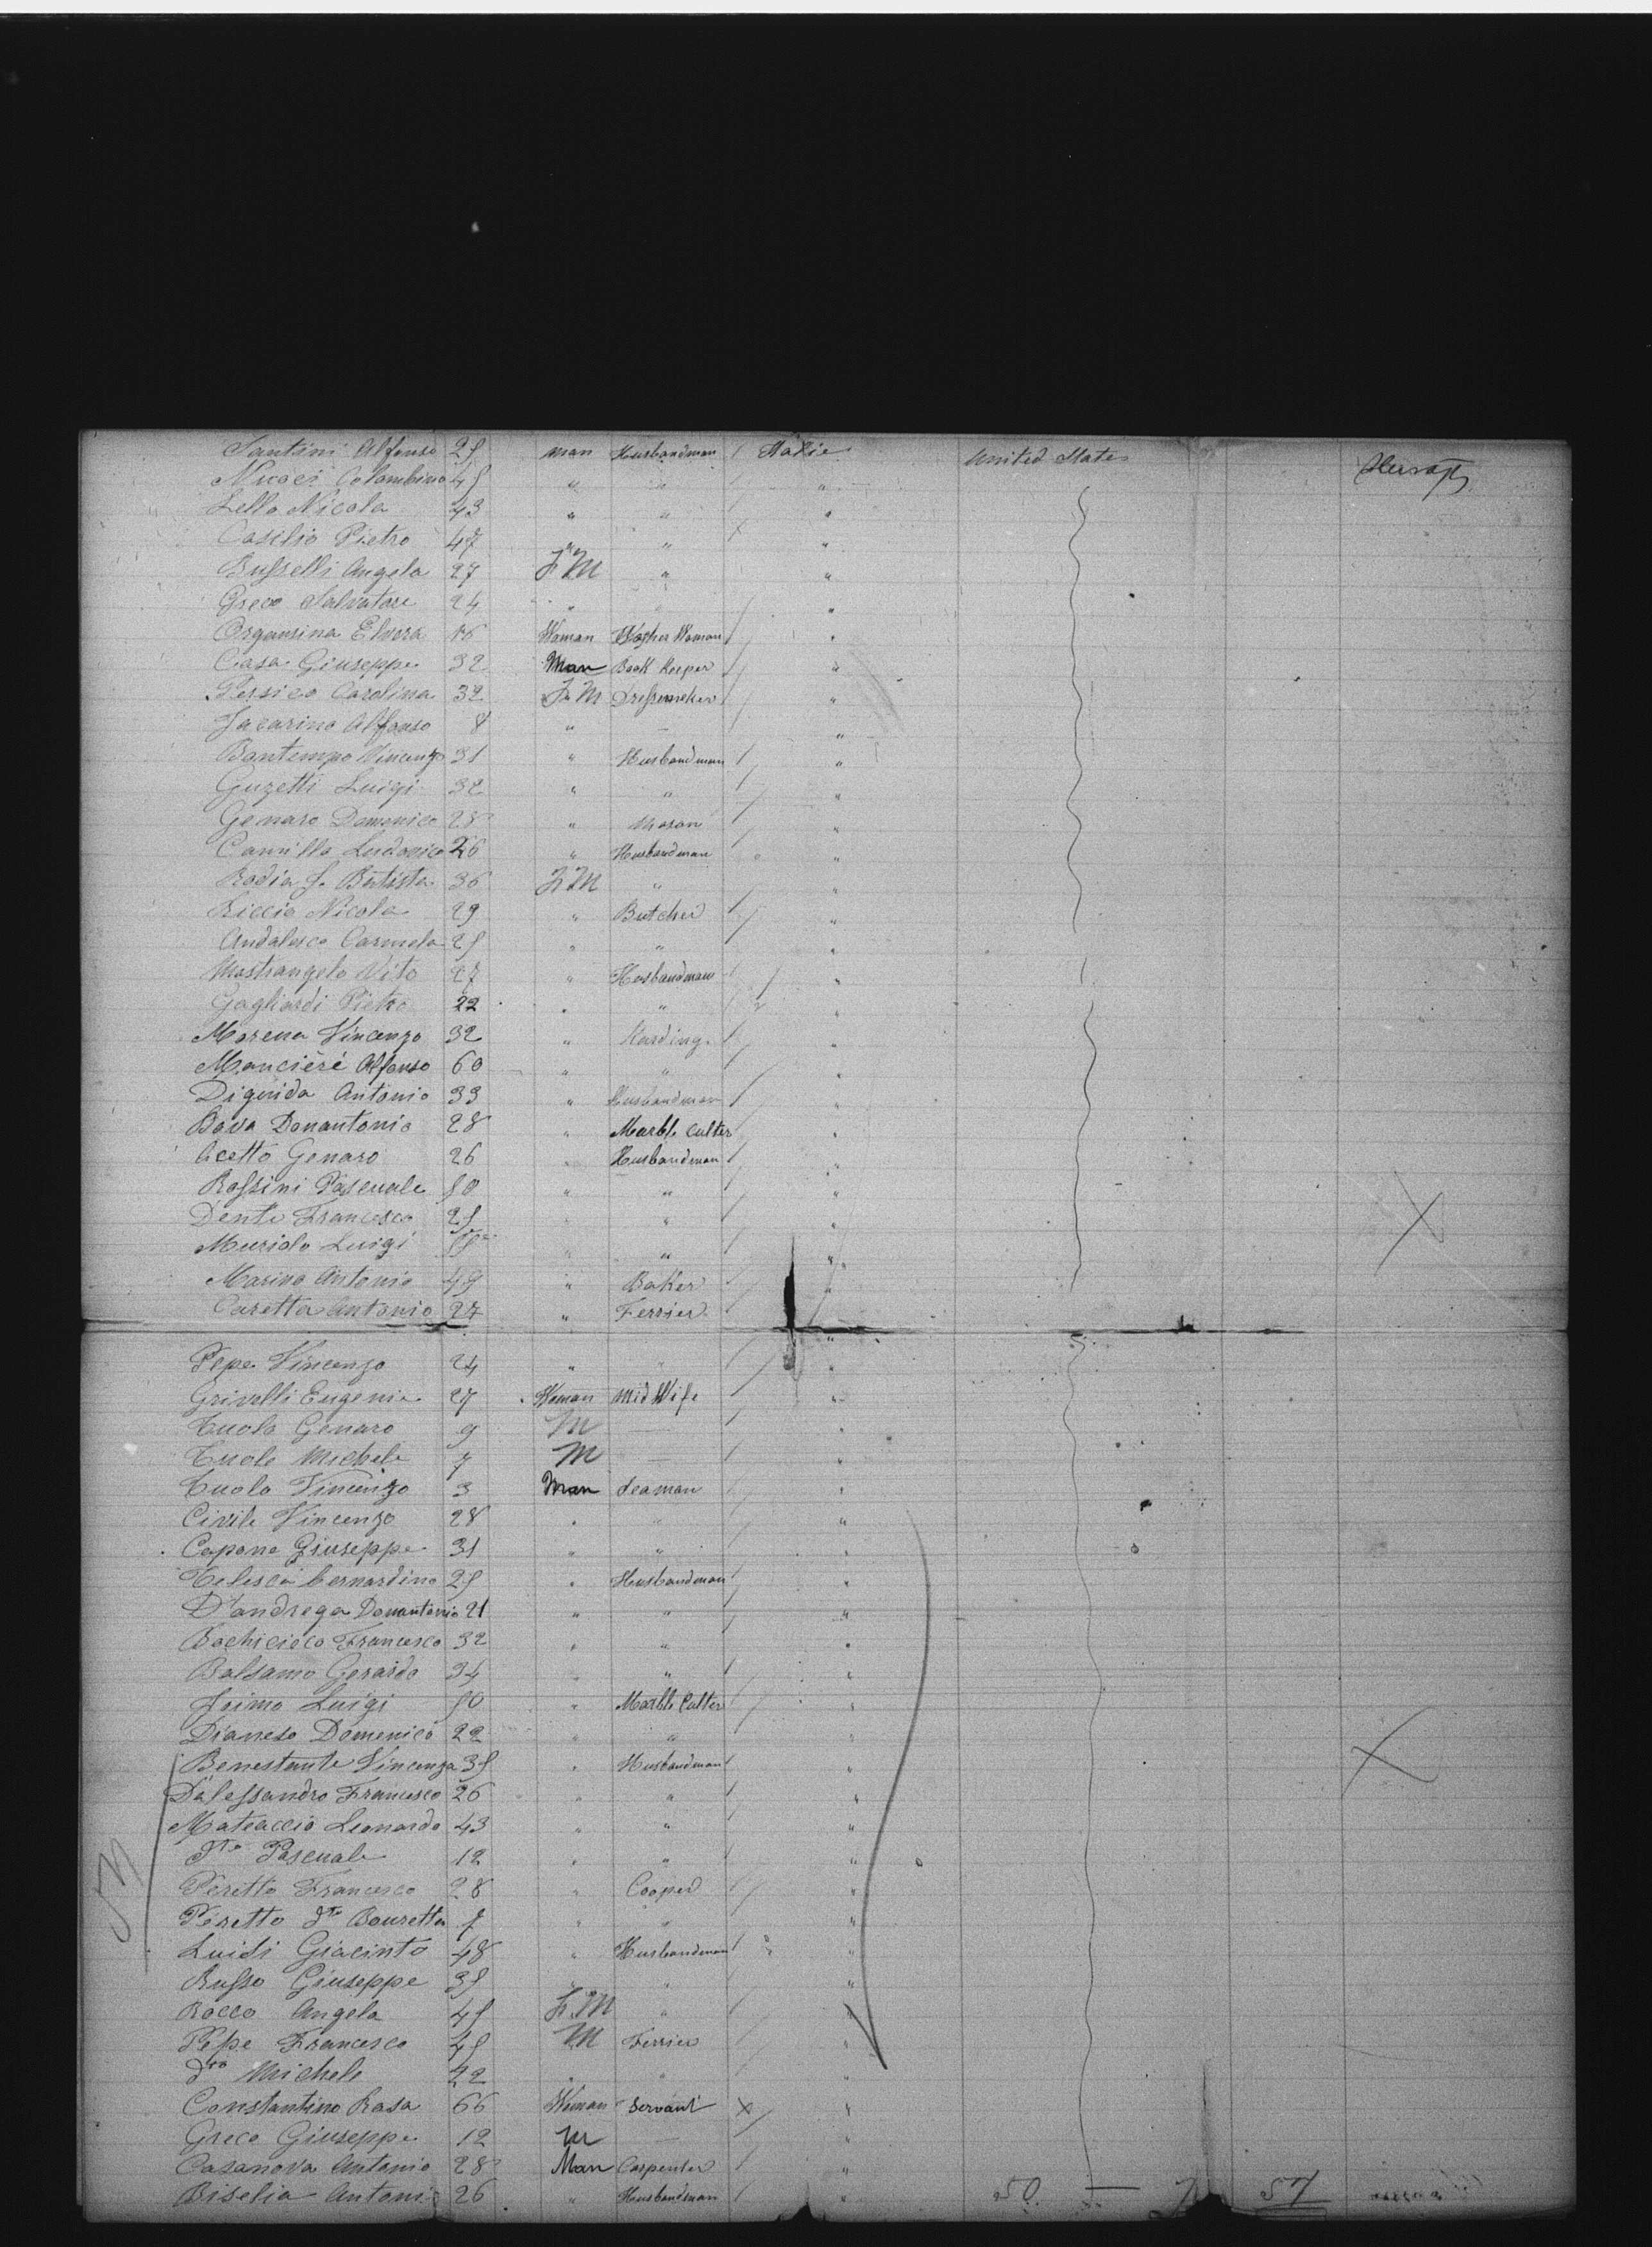 Santini Alfonso 25 man Husbandman Italie United States
Nucci Colombino 45 " " "
Lello Nicola 43 " " "
Casilio Pietro 47 " " "
Busselli Angela 27 F M " "
Greco Salvatore 24 " " "
Organsina Elvera 16 Woman Washer Woman "
Casa Giuseppe 32 Man Book Keeper "
Persico Carolina 32 F M Dressmeker "
Jacarino Alfonso 8 " — "
Bontempo Vincenzo 31 " Husbandman "
Guzetti Luigi 32 " " "
Genaro Domenico 28 " Mason "
Camillo Ludovico 26 " Husbandman "
Rodia J. Batista 36 F M " "
Riccio Nicola 29 " Butcher "
Andalosco Carmelo 25 " " "
Mostrangelo Vito 27 " Husbandman "
Gagliardi Pietro 22 " " "
Morena Vincenzo 32 " "
Mancieré Alfonso 60 " " "
Diguida Antonio 33 " Husbandman "
Bava Donantonio 28 " Marble Cutter "
Acetto Genaro 26 " Husbandman "
Rossini Pascuale 50 " " "
Dente Francesco 25 " " "
Murido Luigi " " "
Marino Antonio 49 " Baker "
Caretta Antonio 27 " Ferrier "
Pepe Vincenzo 24 " " "
Grivelli Eugenia 27 Woman Mid Wife "
Cuolo Genaro 9 M — "
Cuolo Michele 7 M — "
Cuolo Vincenzo 3 Man Seaman "
Civile Vincenzo 28 " " "
Capone Giuseppe 31 " " "
Telesca Bernardino 25 " Husbandman "
D'andrega Donantonio 21 " " "
Bochicioco Francesco 32 " " "
Balsamo Gerardo 34 " " "
Joimo Luigi 50 " Marble Cutter "
Dianeso Domenico 22 " " "
Benestante Vincenza 35 " Husbandman "
Dalessandro Francesco 26 " " "
Mateaccio Leonardo 43 " " "
Dto Pascuale 12 " " "
Peretto Francesco 28 " Cooper "
Peretto dto Bouretta 7 " " "
Luidi Giacinto 48 " Husbandman "
Russo Giuseppe 35 " " "
Rocco Angela 45 F. M " "
Pepe Francesco 45 M Ferrier "
dto Michele 22 " " "
Constantino Rosa 66 Woman Servant "
Greco Giuseppe 12 M — "
Casanova Antonio 28 Man Carpenter "
Biselia Antoni 26 " Husbandman " 50 — 7 57